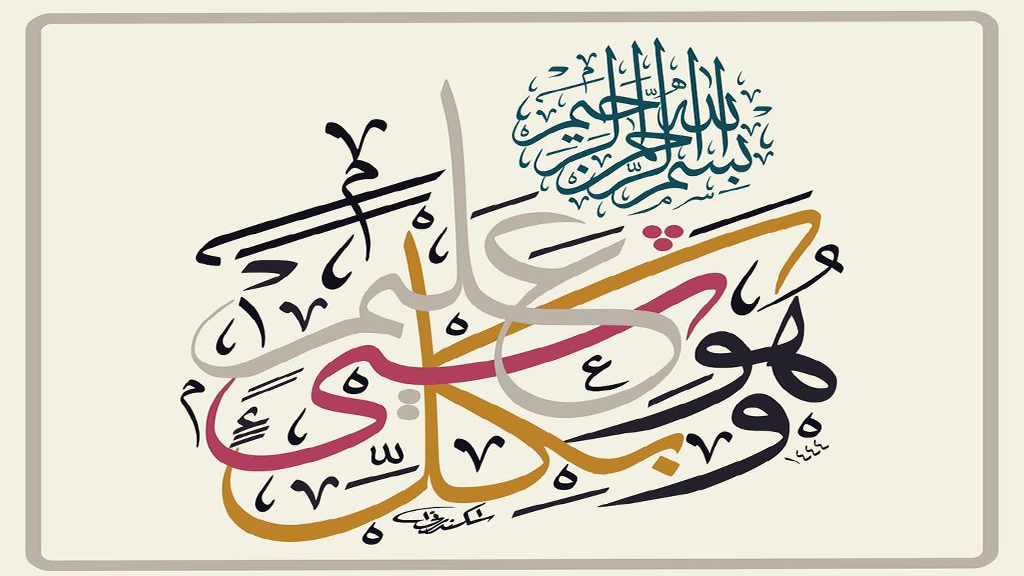 بسم الله الرحمن الرحيم
وَهُوَ بِكُلِّ شَيْءٍ عَلِيمٌ
١٤٤٤